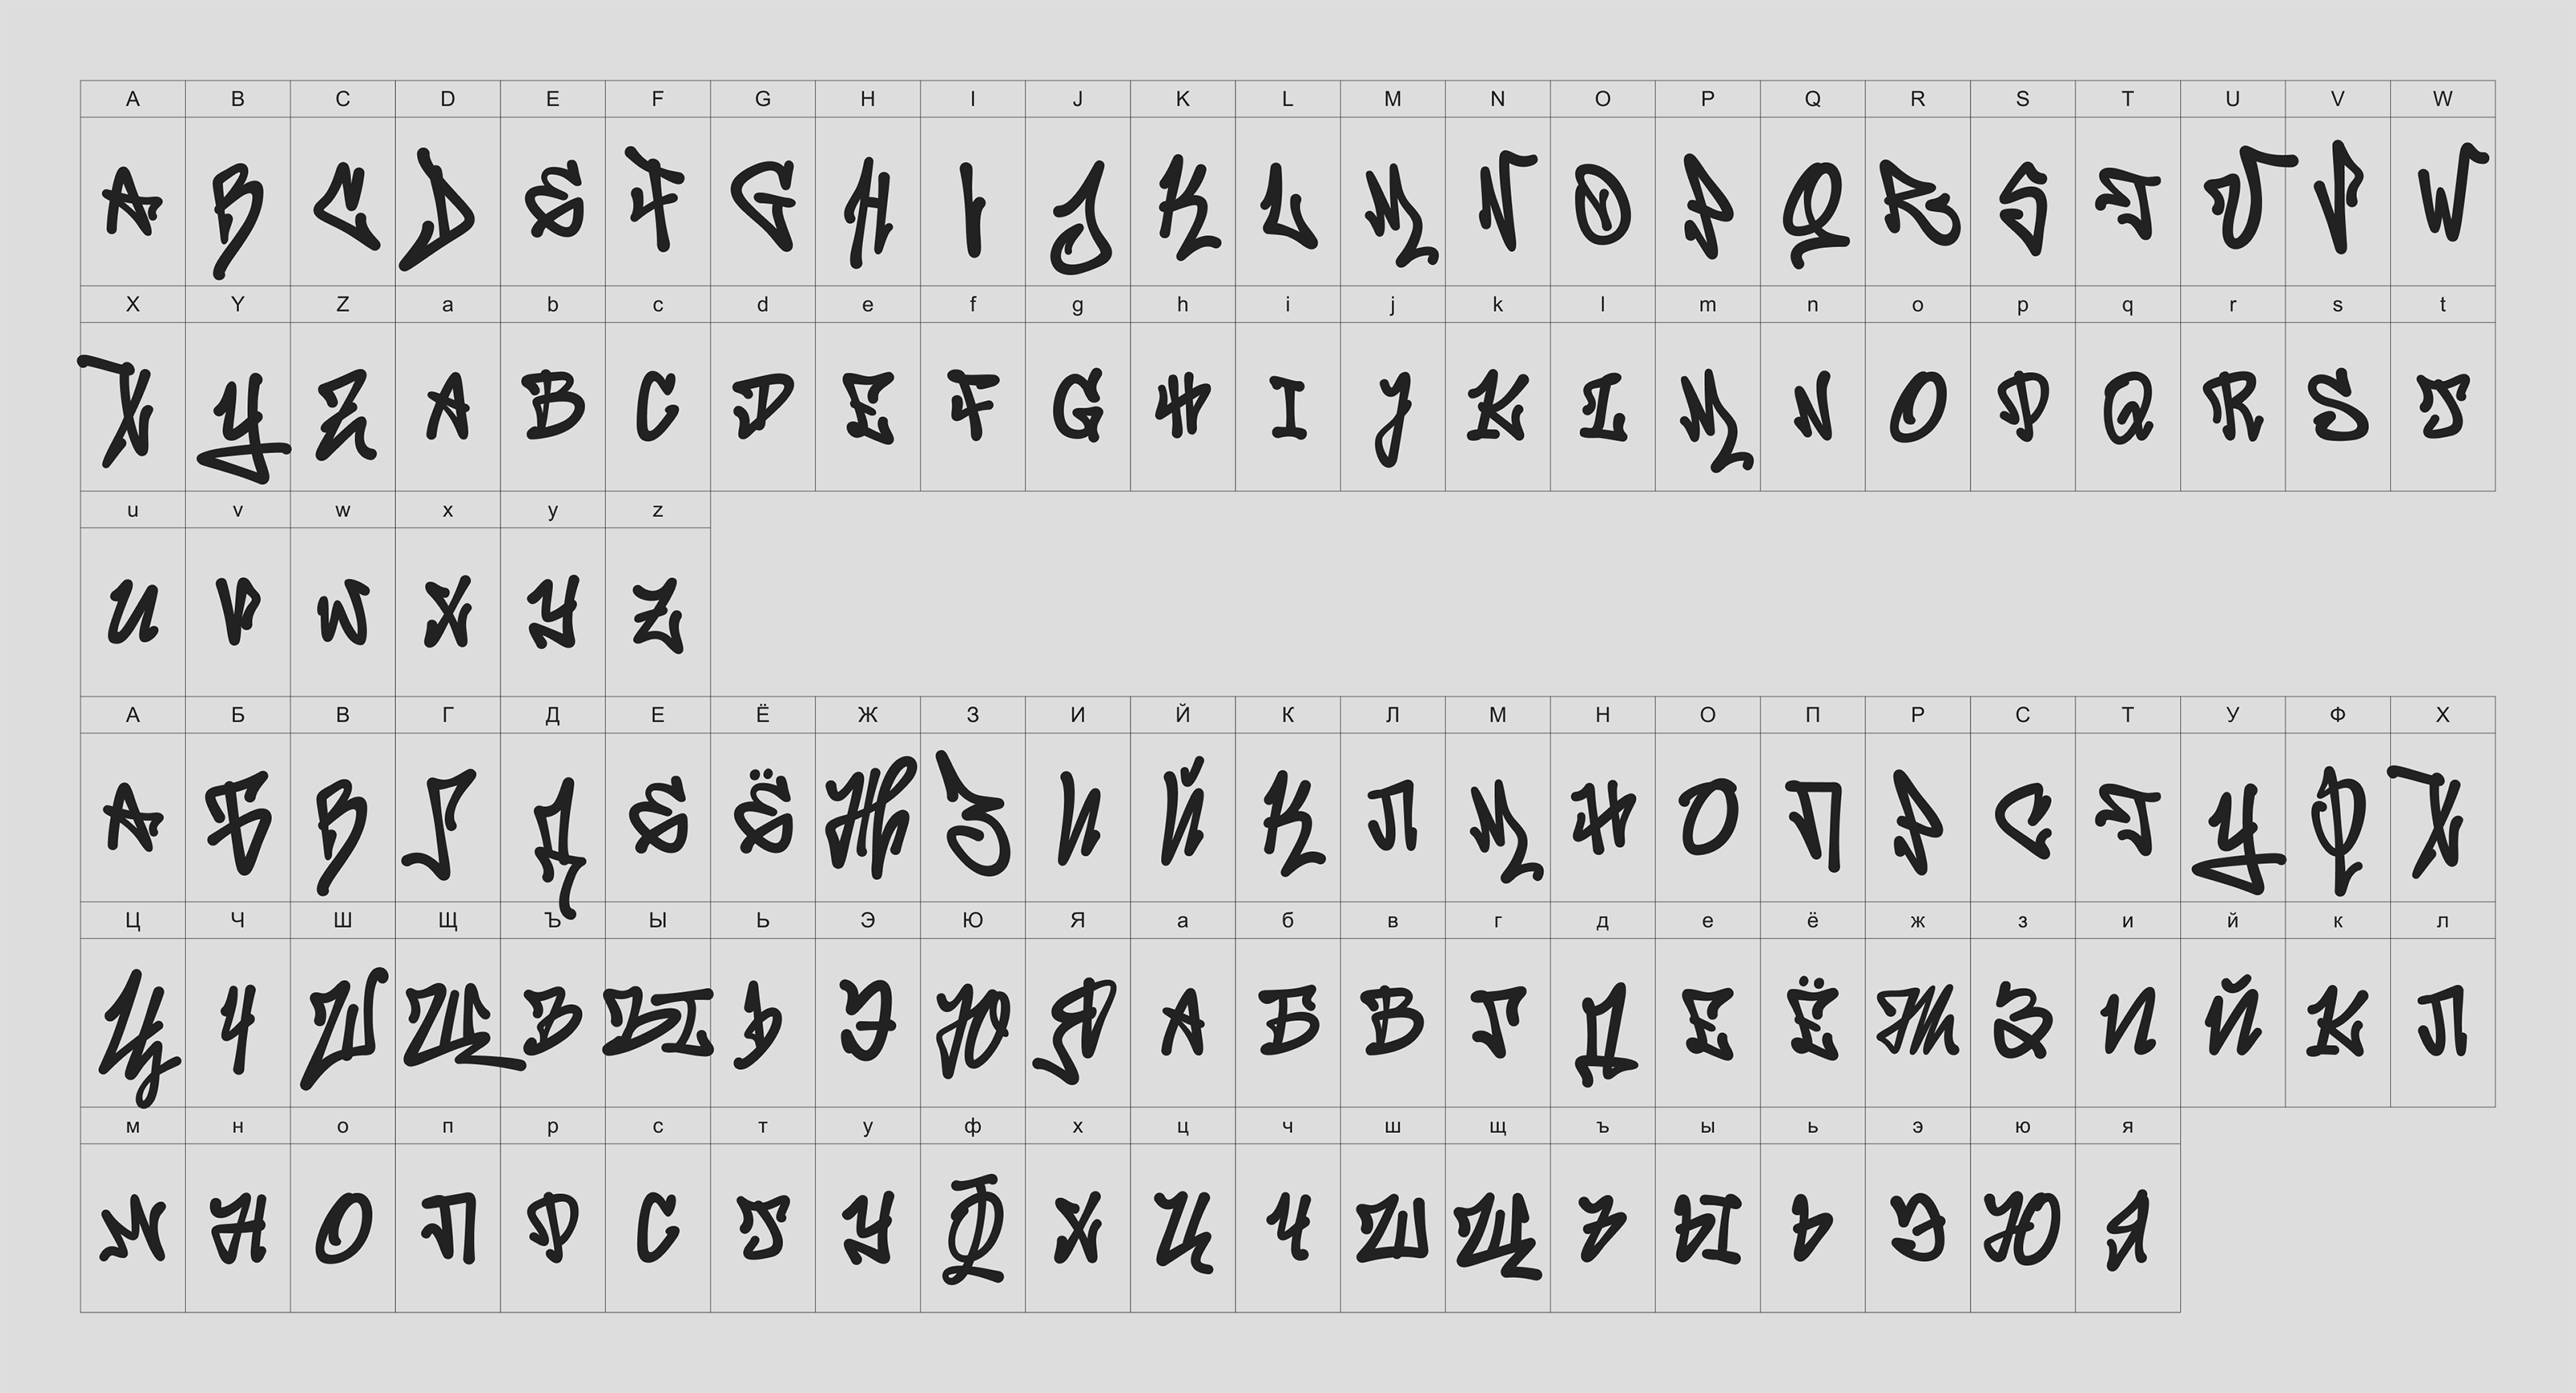 A B C D E F G H I J K L M N O P Q R S T U V W
A B C D E F G H I J K L M N O P Q R S T U V W
X Y Z a b c d e f g h i j k l m n o p q r s t
X Y Z a b c d e f g h i j k l m n o p q r s t
u v w x y z
u v w x y z
А Б В Г Д Е Ё Ж З И Й К Л М Н О П Р С Т У Ф Х
А Б В Г Д Е Ё Ж З И Й К Л М Н О П Р С Т У Ф Х
Ц Ч Ш Щ Ъ Ы Ь Э Ю Я а б в г д е ё ж з и й к л
Ц Ч Ш Щ Ъ Ы Ь Э Ю Я а б в г д е ё ж з и й к л
м н о п р с т у ф х ц ч ш щ ъ ы ь э ю я
м н о п р с т у ф х ц ч ш щ ъ ы ь э ю я